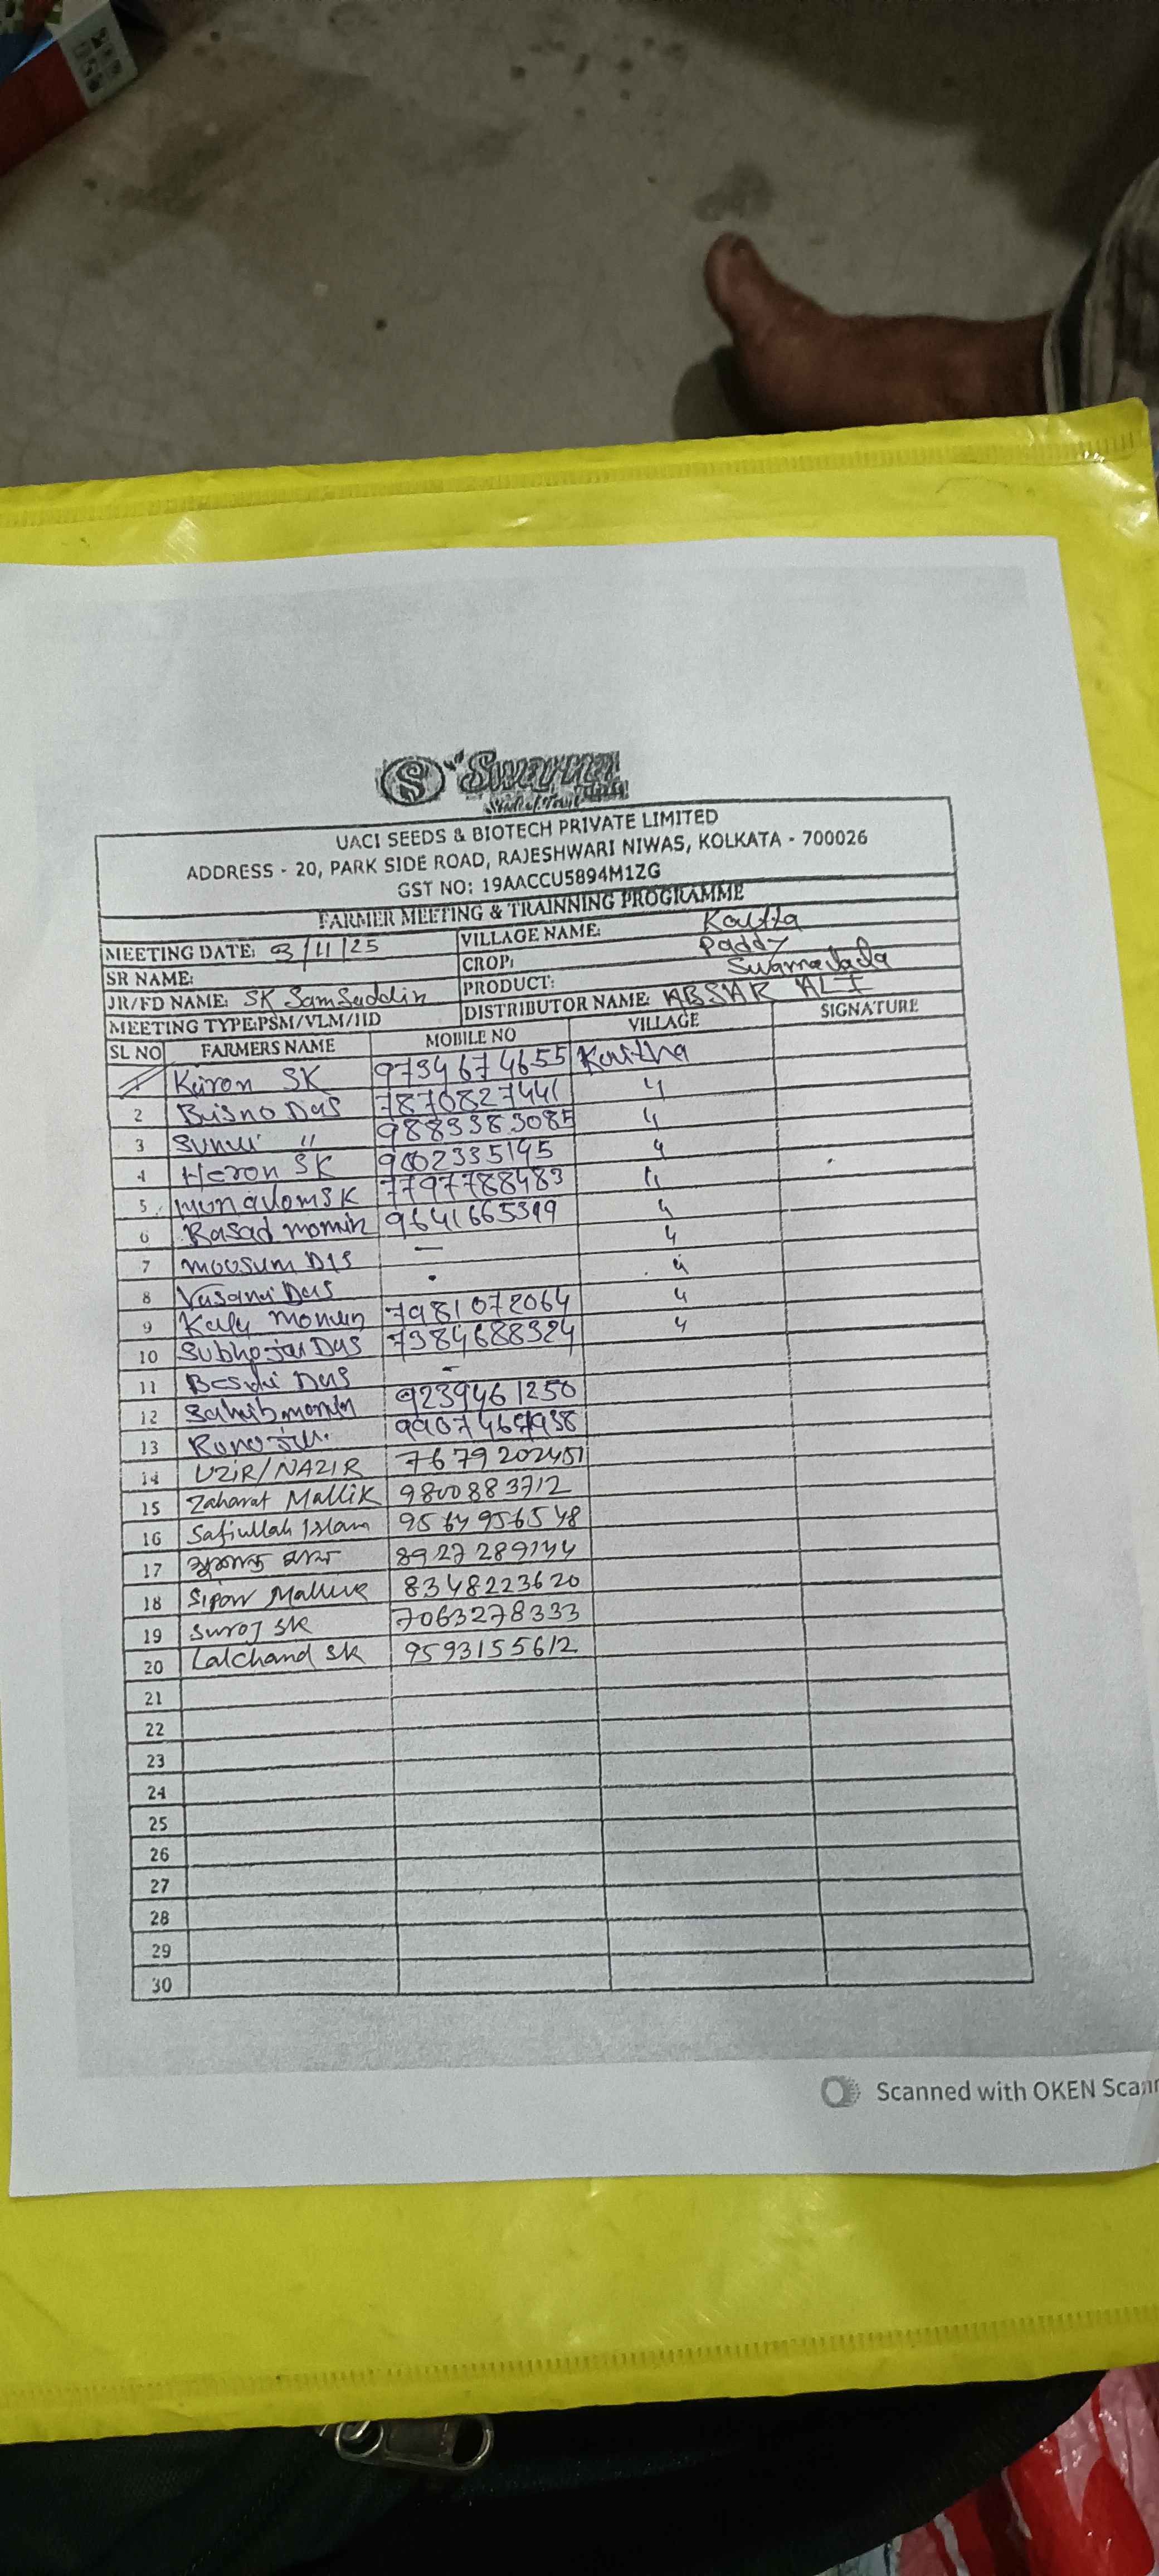 S Swarna
UACI SEEDS & BIOTECH PRIVATE LIMITED
ADDRESS - 20, PARK SIDE ROAD, RAJESHWARI NIWAS, KOLKATA - 700026
GST NO: 19AACCU5894M1ZG
FARMER MEETING & TRAINNING PROGRAMME
MEETING DATE: 03/11/25 VILLAGE NAME: Kaitha
SR NAME: CROP: Paddy
JR/FD NAME: SK Samsuddin PRODUCT:
MEETING TYPE:PSM/VLM/IID DISTRIBUTOR NAME: ABSAR ALI
SL NO FARMERS NAME MOBILE NO VILLAGE SIGNATURE
1 Kiron SK 9734674655 Kaitha
2 Bisno Das 7870827441 "
3 " 9883383085 "
4 Heron SK 9002335195 "
5 monalom SK 7797788483 "
6 Rasad momin 9641665399 "
7 moosum Das - "
8 Das . "
9 Kalu momin 7981072064 "
10 Das 7384688324 "
11 Das -
12 Sahib momin 9239461250
13
14 UZIR/NAZIR 7679202451
15 Zaharat Mallik 9800883712
16 Safiullah Islam 9564956548
17 8927289744
18 8348223620
19 Suroj SK 7063278333
20 Lalchand SK 9593155612
21
22
23
24
25
26
27
28
29
30
Scanned with OKEN Scann